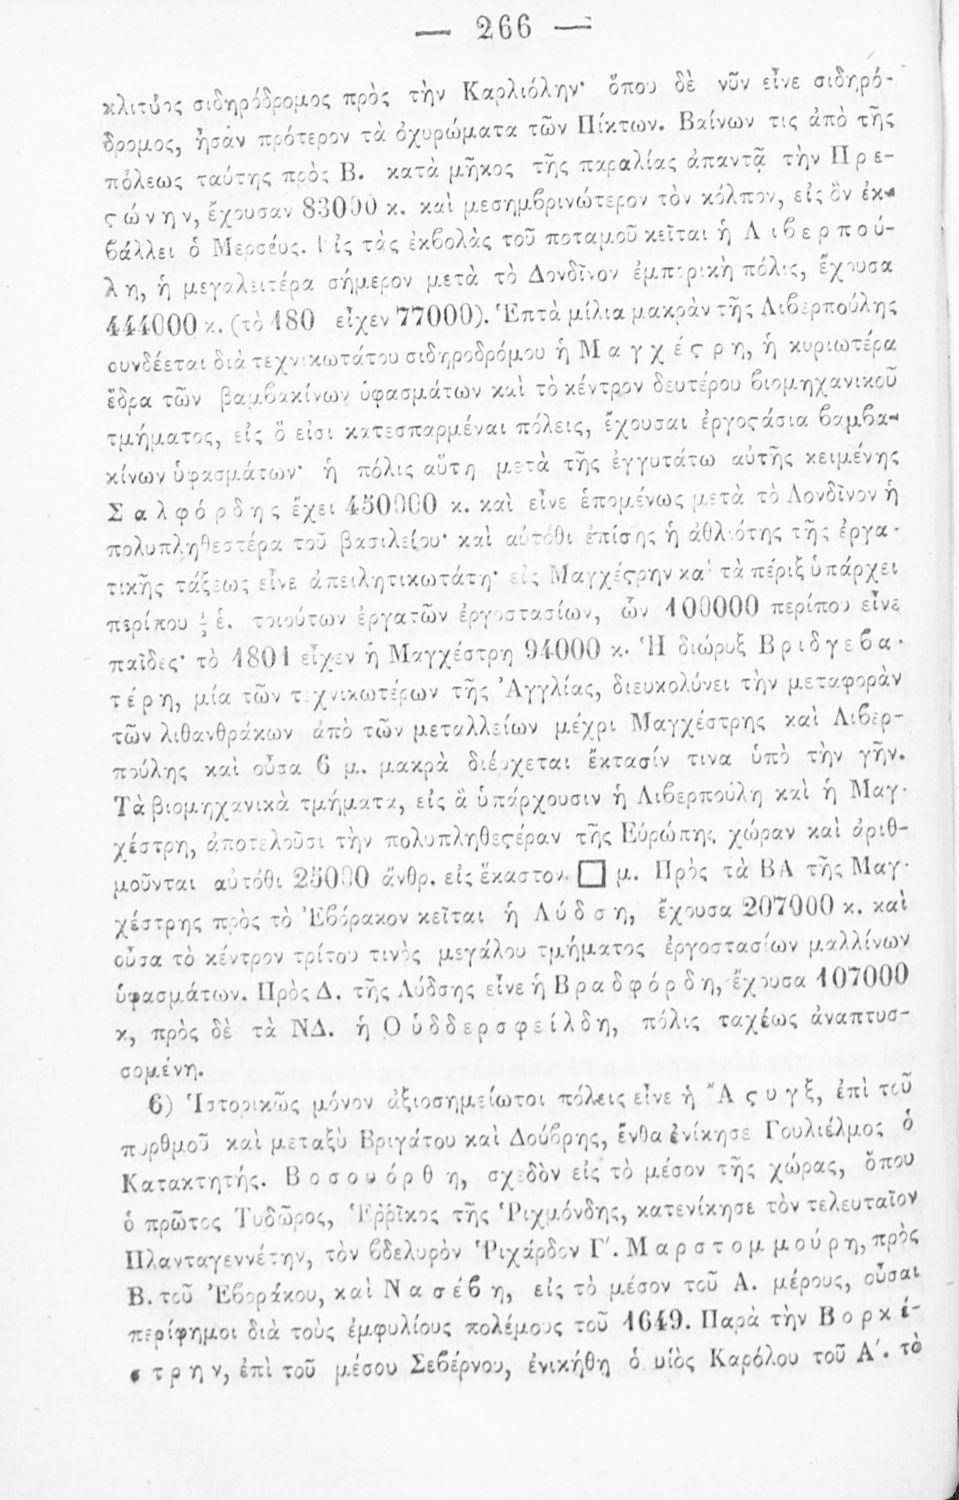 — 266 —
κλιτὺς σιδηρόδρομος πρὸς τὴν Καρλιόλην· ὅπου δὲ νῦν εἶνε σιδηρό-
δρομος, ἦσαν πρότερον τὰ ὀχυρώματα τῶν Πίκτων. Βαίνων τις ἀπὸ τῆς
πόλεως ταύτης πρὸς Β. κατὰ μῆκος τῆς παραλίας ἀπαντᾷ τὴν Πρε-
ςώνην, ἔχουσαν 83000 κ. καὶ μεσημβρινώτερον τὸν κόλπον, εἰς ὃν ἐκ-
βάλλει ὁ Μερσέυς. Εἰς τὰς ἐκβολὰς τοῦ ποταμοῦ κεῖται ἡ Λιβερπού-
λη, ἡ μεγαλειτέρα σήμερον μετὰ τὸ Λονδῖνον ἐμπορικὴ πόλις, ἔχουσα
444000 κ. (τὸ 180 εἶχεν 77000). Ἑπτὰ μίλια μακρὰν τῆς Λιβερπούλης
συνδέεται διὰ τεχνικωτάτου σιδηροδρόμου ἡ Μαγχέςρη, ἡ κυριωτέρα
ἕδρα τῶν βαμβακίνων ὑφασμάτων καὶ τὸ κέντρον δευτέρου βιομηχανικοῦ
τμήματος, εἰς ὅ εἰσι κατεσπαρμέναι πόλεις, ἔχουσαι ἐργοςάσια βαμβα-
κίνων ὑφασμάτων· ἡ πόλις αὕτη μετὰ τῆς ἐγγυτάτω αὐτῆς κειμένης
Σαλφόρδης ἔχει 450000 κ. καὶ εἶνε ἑπομένως μετὰ τὸ Λονδῖνον ἡ
πολυπληθεστέρα τοῦ βασιλείου· καὶ αὐτόθι ἐπίσης ἡ ἀθλιότης τῆς ἐργα-
τικῆς τάξεως εἶνε ἀπειλητικωτάτη· εἰς Μαγχέςρην καὶ τὰ πέριξ ὑπάρχει
περίπου ½ ἑ. τοιούτων ἐργατῶν ἐργοστασίων, ὧν 100000 περίπου εἶνε
παῖδες· τὸ 1801 εἶχεν ἡ Μαγχέστρη 94000 κ. Ἡ διώρυξ Βριδγεβα-
τέρη, μία τῶν τεχνικωτέρων τῆς Ἀγγλίας, διευκολύνει τὴν μεταφορὰν
τῶν λιθανθράκων ἀπὸ τῶν μεταλλείων μέχρι Μαγχέστρης καὶ Λιβερ-
πούλης καὶ οὖσα 6 μ. μακρὰ διέρχεται ἔκτασίν τινα ὑπὸ τὴν γῆν.
Τὰ βιομηχανικὰ τμήματα, εἰς ἃ ὑπάρχουσιν ἡ Λιβερπούλη καὶ ἡ Μαγ-
χέστρη, ἀποτελοῦσι τὴν πολυπληθεςέραν τῆς Εὐρώπης χώραν καὶ ἀριθ-
μοῦνται αὐτόθι 25000 ἄνθρ. εἰς ἕκαστον □ μ. Πρὸς τὰ ΒΑ τῆς Μαγ-
χέστρης πρὸς τὸ Ἐβόρακον κεῖται ἡ Λύδση, ἔχουσα 207000 κ. καὶ
οὖσα τὸ κέντρον τρίτου τινὸς μεγάλου τμήματος ἐργοστασίων μαλλίνων
ὑφασμάτων. Πρὸς Δ. τῆς Λύδσης εἶνε ἡ Βραδφόρδη, ἔχουσα 107000
κ, πρὸς δὲ τὰ ΝΔ. ἡ Οὑδδερσφείλδη, πόλις ταχέως ἀναπτυσ-
σομένη.
6) Ἱστορικῶς μόνον ἀξιοσημείωτοι πόλεις εἶνε ἡ Ἄςυγξ, ἐπὶ τοῦ
πορθμοῦ καὶ μεταξὺ Βριγάτου καὶ Δούβρης, ἔνθα ἐνίκησε Γουλιέλμος ὁ
Κατακτητής. Βοσουόρθη, σχεδὸν εἰς τὸ μέσον τῆς χώρας, ὅπου
ὁ πρῶτος Τυδῶρος, Ἑρρῖκος τῆς Ῥιχμόνδης, κατενίκησε τὸν τελευταῖον
Πλανταγεννέτην, τὸν βδελυρὸν Ῥιχάρδον Γ΄. Μαρστομμούρη, πρὸς
Β. τοῦ Ἐβοράκου, καὶ Νασέβη, εἰς τὸ μέσον τοῦ Α. μέρους, οὖσαι
περίφημοι διὰ τοὺς ἐμφυλίους πολέμους τοῦ 1649. Παρὰ τὴν Βορκέ-
στρην, ἐπὶ τοῦ μέσου Σεβέρνου, ἐνικήθη ὁ υἱὸς Καρόλου τοῦ Α΄. τὸ